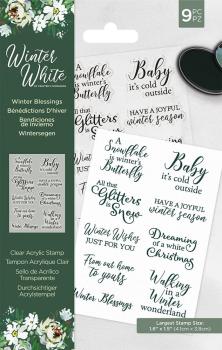 9 PC
PZ
Winter
White
BY CRAFTER'S COMPANION
Winter Blessings
Bénédictions D'hiver
Bendiciones
de Invierno
Wintersegen
Clear Acrylic Stamp
Tampon Acrylique Clair
Sello de Acrílico
Transparente
Durchsichtiger
Acrylstempel
A
Snowflake
is winter's
Butterfly
Baby
it's cold
outside
All that
Glitters
is
Snow
HAVE A JOYFUL
winter season
Winter Wishes
JUST FOR YOU
Dreaming
of a white
Christmas
From our home
to yours
Walking
in a
Winter
WONDERLAND
Winter Blessings
Largest Stamp Size:
1.6" x 1.5" (4.1cm x 3.8cm)